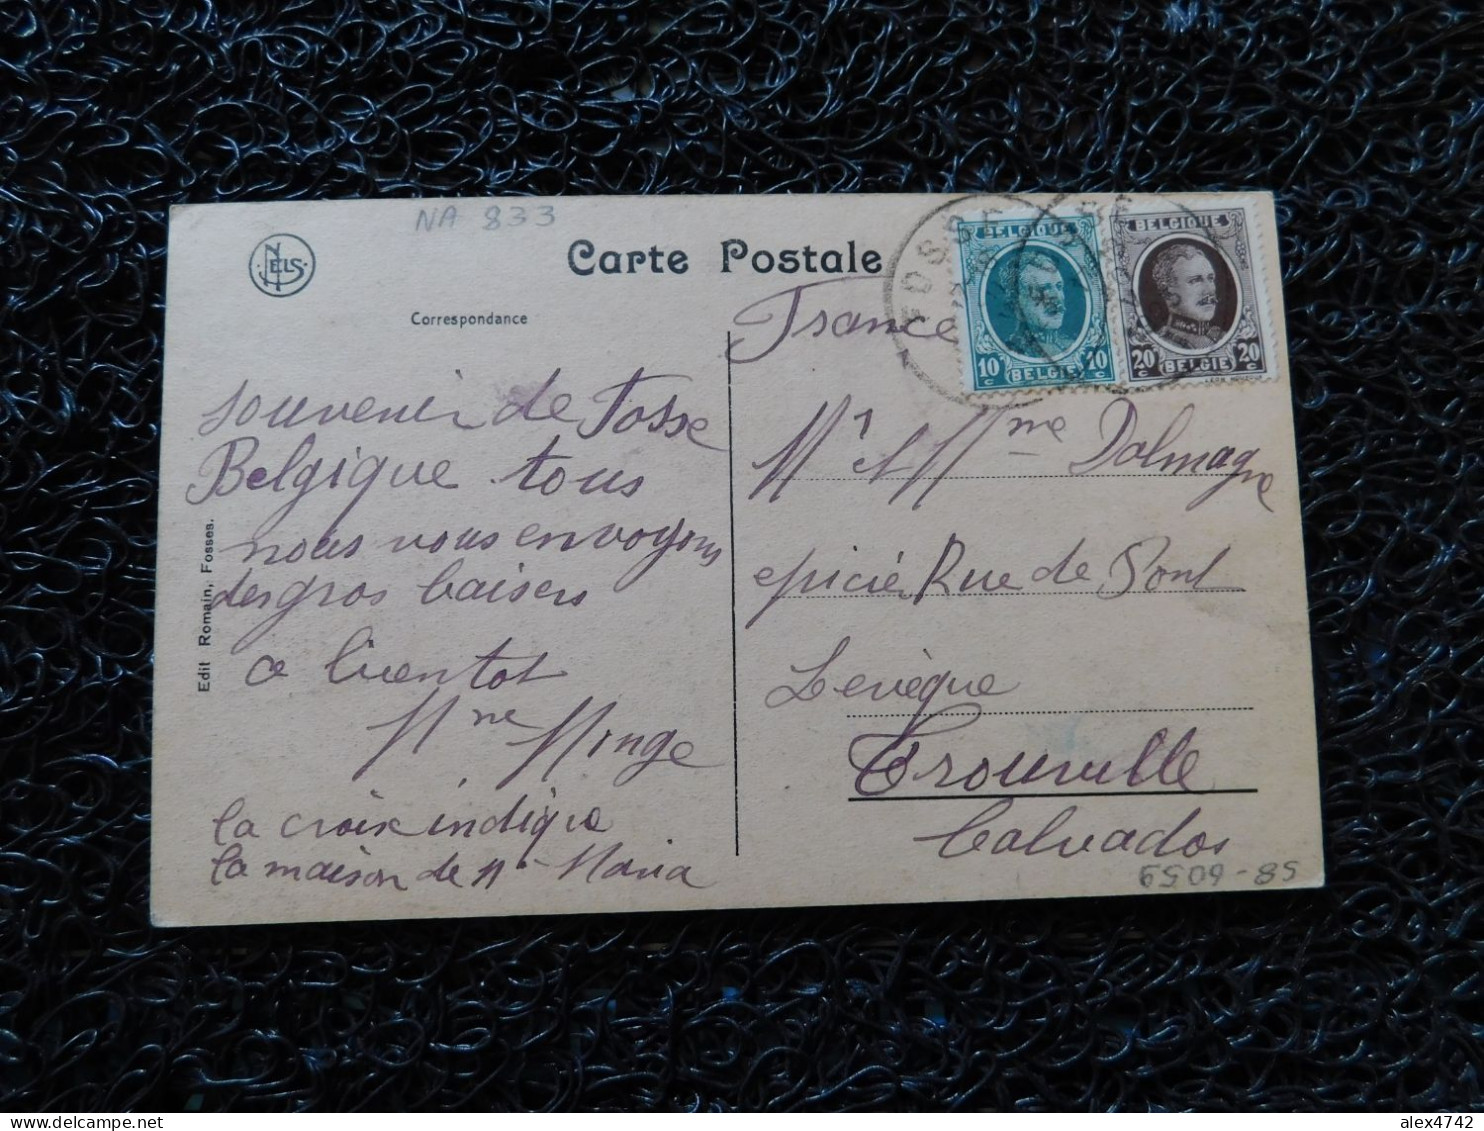 NA 833
NELS
Carte Postale
Correspondance
Edit Romain, Fosses.
souvenir de Fosse
Belgique tous
nous vous envoyons
des gros baisers
a bientot
Mme Monge
la croix indique
la maison de Maria
France
FOSSE
BELGIQUE
10 c 10 c
BELGIE
BELGIQUE
20 c 20 c
BELGIE
Mr et Mme Dalmagne
epicié Rue de Pont
Levèque
Trouville
Calvados
58-6059
alex4742